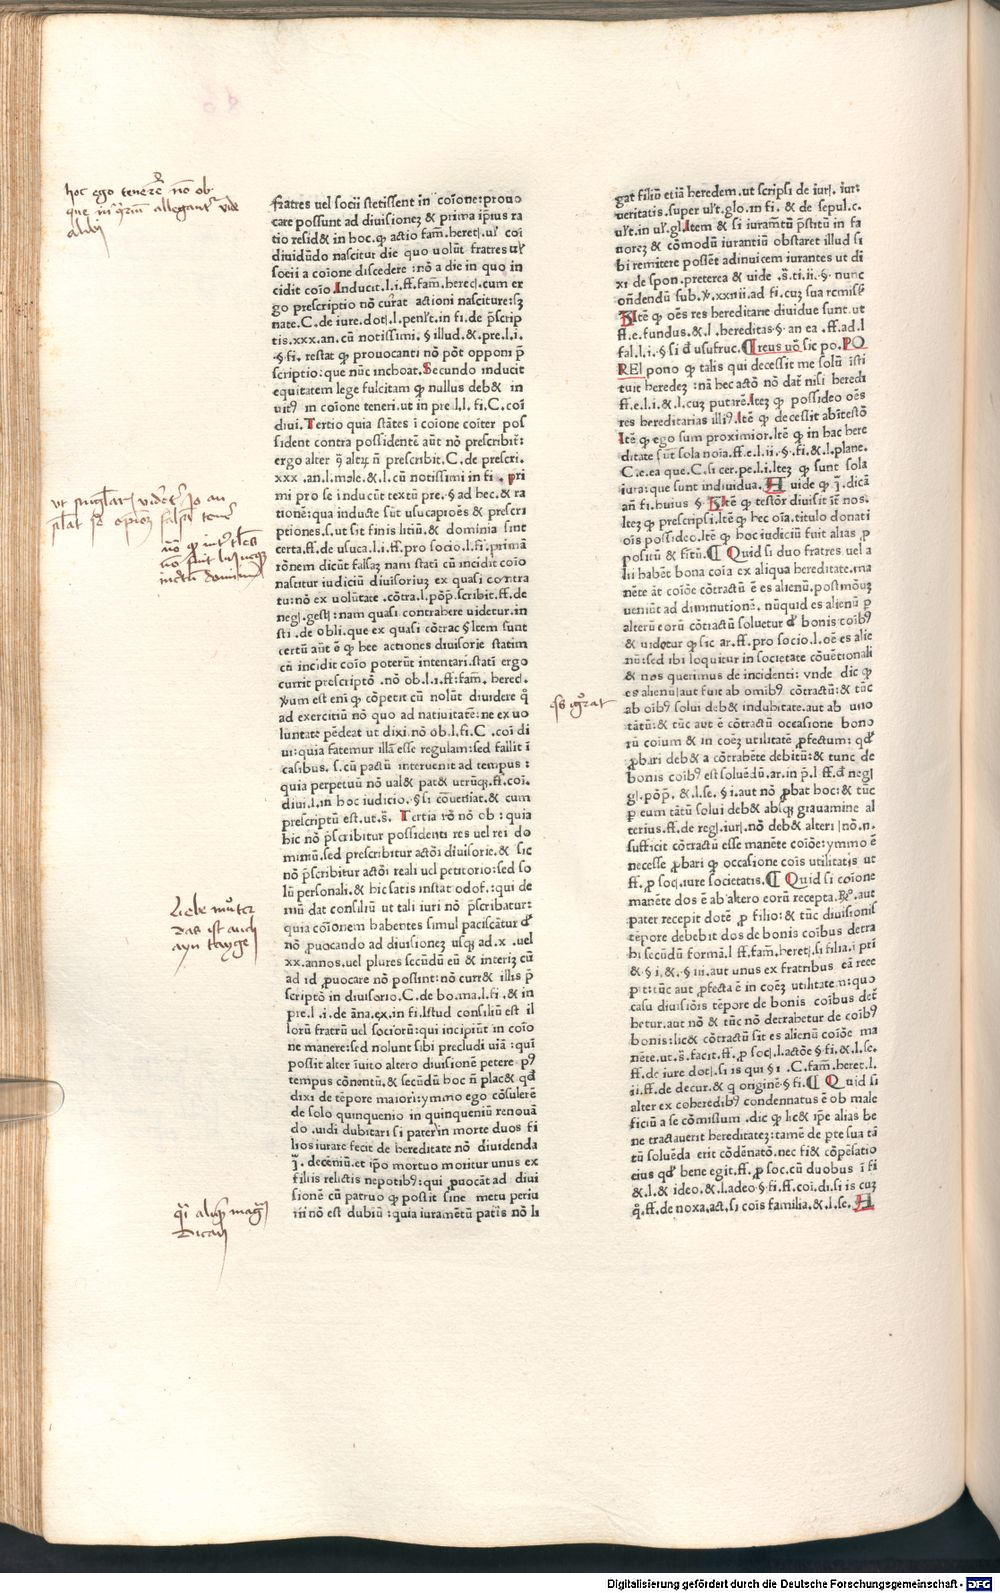 fratres uel socii stetissent in coīone: prouo
care possunt ad diuisionez & prima ip̄ius ra
tio resid& in hoc. ꝙ actio fam̄. heret̨. ul̕ coī
diuidūdo nascitur die quo uolūt fratres ul̕
socii a coīone discedere : nō a die in quo in
cidit coīo. Inducit .l.i. ff. fam̄. herec̨. cum er
go prescriptio nō currat actioni nasciture: sz
nate. C. de iure dot̨. l. penl̕t. in fi. de p̄scrip
tis. xxx. an. cū notissimi. § illud. & pre. l. i.
§ fi. restat ꝙ prouocanti nō pōt opponi p̄
scriptio: que nūc inchoat. Secundo inducit
equitatem lege fulcitam ꝙ nullus deb& in
uitꝰ in coīone teneri. ut in pre. l. l. fi. C. coī
diui. Tertio quia stātes ī coīone coiter pos
sident contra possidentē aūt nō prescribit̄:
ergo alter ꝯ̄ alterꝫ n̄ prescribit. C. de prescri.
xxx .an. l. male. & l. cū notissimi in fi. pri
mi pro se inducūt textū pre. § ad hec. & ra
tionē: quia inducte sūt usucapioēs & prescri
ptiones. s. ut sit finis litiū. & dominia sint
certa. ff. de usuca. l. i. ff. pro socio. l. fi. primā
rōnem dicūt falsaz nam statī cū incidit coīo
nascitur iudiciū diuisoriuz ex quasi contra
tu: nō ex uolūtate .cōtra. l. pōp̄. scribit. ff. de
neg̨. gest̨: nam quasi contrahere uidetur. in
sti .de obli. que ex quasi cōtrac § Item sunt
certū aūt ē ꝙ hee actiones diuisorie statim
cū incidit coīo poterūt intentari. statī ergo
currit prescriptō .nō ob. l. i. ff: fam̄. herec̨.
Verum est enī ꝙ cōpetit cū nolūt diuidere q̊
ad exercitiū nō quo ad natiuitatē: ne ex uo
luntate pēdeat ut dixi. nō ob. l. fi. C .coī di
ui: quia fatemur illā esse regulam: sed fallit ī
casibus. s. cū pactū interuenit ad tempus :
quia perpetuū nō ual& pat& utrūqꝫ. ff. coī.
diui. l. in hoc iudicio. § si cōueniat. & cum
prescriptū est. ut. s̄. Tertia rō nō ob : quia
hic nō p̄scribitur possidenti res uel rei do
miniū. sed prescribitur actōi diuisorie. & sic
nō p̄scribitur actōi reali uel petitorio: sed so
lū personali. & hic satis instat odof.: qui de
mū dat consiliū ut tali iuri nō p̄scribatur:
quia coīonem habentes simul paciscātur ꝙ
nō ꝓuocando ad diuisionez usqꝫ ad .x. uel
xx. annos. uel plures secūdū eū & interiz cū
ad id ꝓuocare nō possint: nō curr& illis p̄
scriptō in diuisorio. C. de bo. ma. l. fi. & in
pre. l. i. de āna. ex. in fi. Istud consiliū est il
lorū fratrū uel sociorū: qui incipiūt in coīo
ne manere: sed nolunt sibi precludi uiā : quī
possit alter īuito altero diuisionē petere pꝰ
tempus cōnentū. & secūdū hoc n̄ plac& qđ
dixi de tēpore maiori: ymmo ego cōsulerē
de solo quinquenio in quinqueniū renouā
do .uidi dubitari si pater in morte duos fi
lios iurare fecit de hereditate nō diuidenda
decēniū. et ip̄o mortuo moritur unus ex
filiis relictis nepotibꝰ: qui ꝓuocāt ad diui
sionē cū patruo ꝙ possit sine metu periu
rii nō est dubiū : quia iuramētū patris nō li
gat filiū etiā heredem. ut scripsi de iur̨. iur̄
ueritatis. super ul̕t. glo. in fi. & de sepul. c.
ul̕t. in ul̕. gl. Item & si iuramtū p̄stitū in fa
norez & cōmodū iurantiū obstaret illud si
bi remitere possēt adinuicem iurantes ut di
xi de spon. preterea & uide .s̄. ti. ii. § nunc
oñdendū sub. ꝟ. xxxiii. ad fi. cuz sua remisꝭ
Itē ꝙ oēs res hereditarie diuidue sunt. ut
ff. e. fundus. & l. hereditas. § an ea .ff. ad l
fal. l. i. § si đ usufruc. ¶ reus uō sic po. PO
REl pono ꝙ talis qui decessit me solū īsti
tuit heredez : nā hec actō nō dat̄ nisi heredi
ff. e. l. i. & l. cuz putarē. Itez ꝙ possideo oēs
res hereditarias illiꝰ. Itē ꝙ decessit abītestō
Itē ꝙ ego sum proximior. Itē ꝙ in hac here
ditate sūt sola noīa. ff. e. l. ii. § fi. & l. plane.
C. e. ea que. C. si cer. pe. l. i. Itez ꝙ sunt sola
iura: que sunt indiuidua. A uide ꝙ j. dicā
an̄ fi. huius § Itē ꝙ testōr diuisit īt̄ nos.
Itez ꝙ prescripsi. Itē ꝙ hec oīa. titulo donati
oīs possideo. Itē ꝙ hoc iudiciū fuit alias ꝓ
positū & fītū. ¶ Quid si duo fratres uel a
lii habēt bona coīa ex aliqua hereditate. ma
nēte āt coīōe cōtractū ē es alienū. postmoꝫ
ueniūt ad diminutionē. nūquid es alienū ꝑ
alterū eorū cōtractū soluetur đ bonis coībꝰ
& uidetur ꝙ sic ar. ff. pro socio. l. oē es alie
nū: sed ibi loquitur in societate cōuētionali
& nos querimus de incidenti: vnde dic ꝙ
es alienū aut fuit ab omībꝰ cōtractū: & tūc
ab oībꝰ solui deb& indubitate. aut ab uno
tātū: & tūc aut ē cōtractū occasione bono
rū coium & in coēz utilitatē ꝓfectum: qđ
ꝓbari deb& a cōtrahēte debitū: & tunc de
bonis coībꝰ est soluēdū. ar. in p̄. l ff. đ neg̨
g̨. pōp̄. & l. se. § i. aut nō ꝓbat hoc: & tūc
ꝑ eum tātū solui deb& absqꝫ grauamine al
terius. ff. de reg̨. iur̨. nō deb& alteri nō. n.
sufficit cōtractū esse manēte coīōe: ymmo ē
necesse ꝓbari ꝙ occasione coīs utilitatis ut
ff. ꝓ soc̨. iure societatis. ¶ Quid si coīone
manēte dos ē ab altero eorū recepta. R̄o. aut
pater recepit dotē ꝓ filio: & tūc diuisionis
tēpore debebit dos de bonis coībus detra
hi secūdū formā. l ff. fam̄. heret̨. si filia. ī pri
& § i. & § iii. aut unus ex fratribus eā rece
pit: tūc aut ꝓfecta ē in coēz utilitatem: quo
casu diuisiōis tēpore de bonis coībus det̄
hetur. aut nō & tūc nō detrahetur de coībꝰ
bonis: lic& cōtractū sit es alienū coīōe ma
nēte. ut. s̄. facit. ff. ꝓ soc̨. l. actōe § fi. & l. se.
ff. de iure dot̨. si is qui § i. C. fam̄. heret. l.
ii. ff. de decur. & q̨ originē § fi. ¶ Quid si
alter ex coheredibꝰ condennatus ē ob male
ficiū a se cōmissum .dic ꝙ lic& ip̄e alias be
ne tractauerit hereditatez: tamē de pte sua tā
tū soluēda erit cōdēnatō. nec fi& cōpēsatio
eius qđ bene egit. ff. ꝓ soc. cū duobus ī fi
& l. & ideo. & l. adeo § fi. ff. coī. di. si is cuz
q̊. ff. de noxa. act. si coīs familia. & l. se. A
hoc ego tenerē nō ob
que in allegant̄ vide
Liebe mūter
das ist auch
ayn tayge
Digitalisierung gefördert durch die Deutsche Forschungsgemeinschaft - DFG